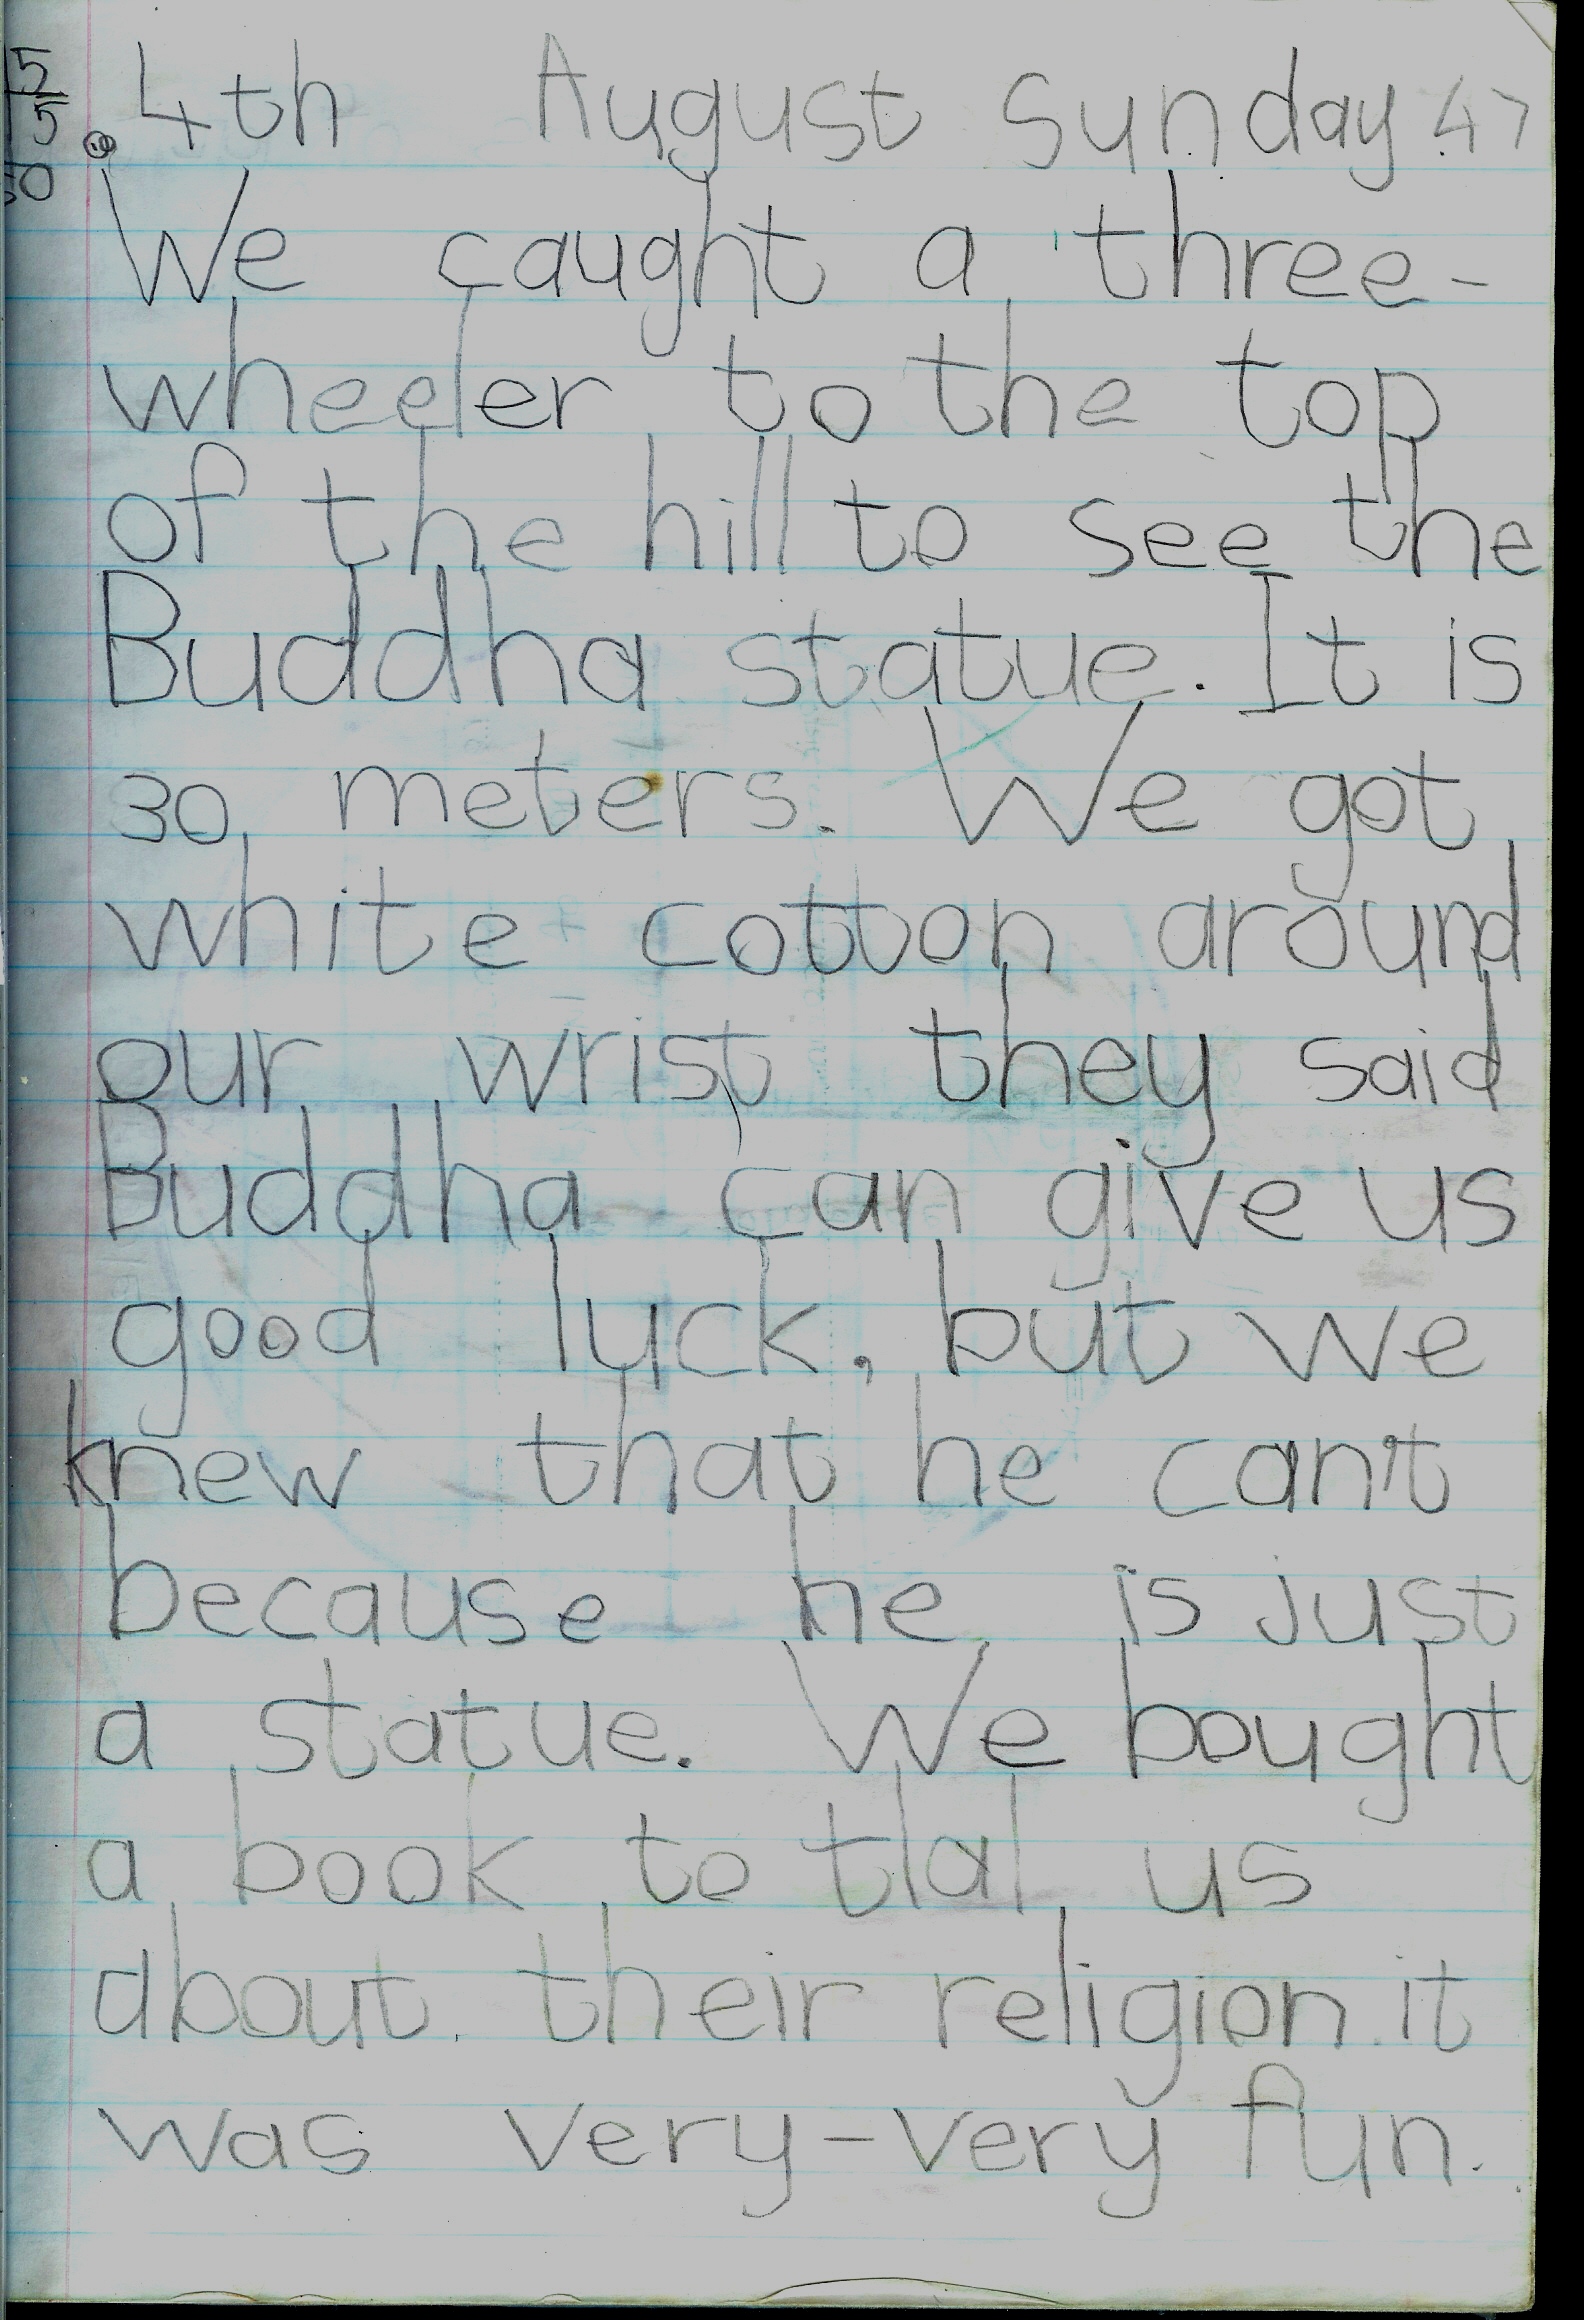 5
5
0
4th August Sunday 47
We caught a three-
wheeler to the top
of the hill to see the
Buddha statue. It is
30 meters. We got
white cotton around
our wrist they said
Buddha can give us
good luck, but we
knew that he can't
because he is just
a statue. We bought
a book to tlal us
about their religion. it
was very-very fun.